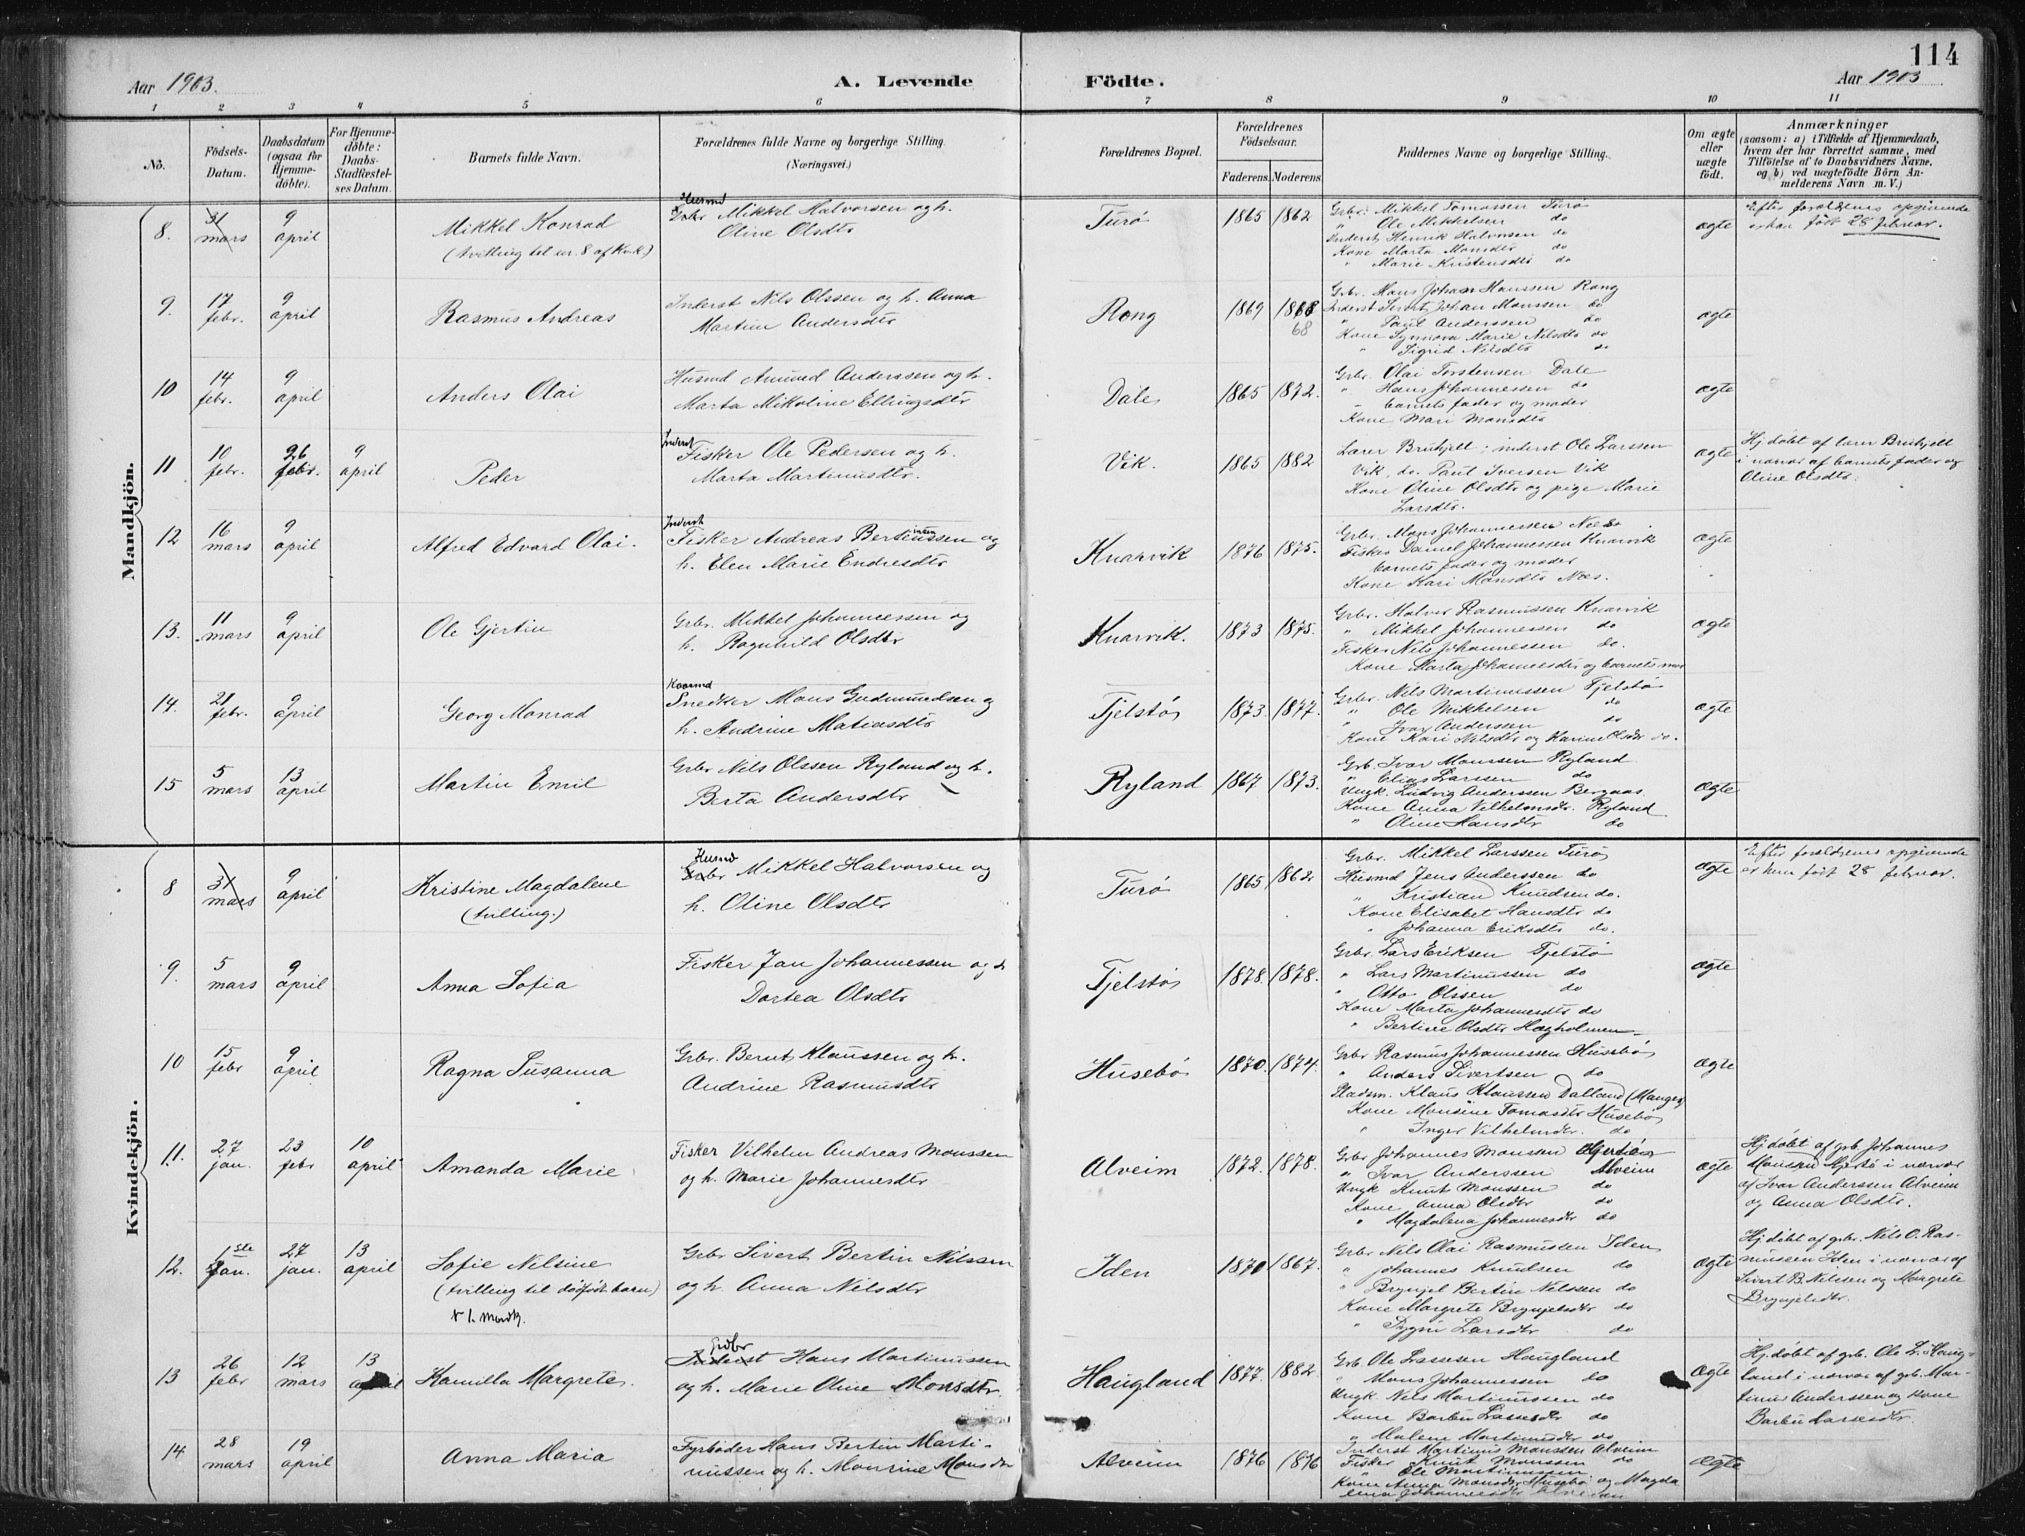 114
Aar 1903.
A. Levende Födte.
Aar 1903
1 2 3 4 5 6 7 8 9 10 11
No.
Födsels-Datum.
Daabsdatum (ogsaa for Hjemmedöbte).
For Hjemmedöbte: Daabs-Stadfæstelses Datum.
Barnets fulde Navn.
Forældrenes fulde Navne og borgerlige Stilling. (Næringsvei.)
Forældrenes Bopæl.
Forældrenes Födselsaar.
Faderens. Moderens.
Faddernes Navne og borgerlige Stilling.
Om ægte eller uægte födt.
Anmærkninger
(saasom: a) i Tilfælde af Hjemmedaab, hvem der har forrettet samme, med Tilföielse af to Daabsvidners Navne, og b) ved uægtefödte Börn Anmelderens Navn m. V.)
Mandkjön.
8. 31 mars 9 april
Mikkel Konrad
(tvilling til nr. 8 af kvk.)
Husmd
Grbr Mikkel Halvorsen og h.
Oline Olsdtr
Turø 1865 1862
Grbr. Mikkel Tomassen Turø
" Ole Mikkelsen do
Inderst Henrik Halvorsen do
Kone Marta Monsdtr do
" Marie Kristensdtr do
ægte
Efter foreldrenes opgivende
er han født 28 februar.
9. 17 febr. 9 april
Rasmus Andreas
Inderst Nils Olssen og h. Anna
Martin Andersdtr
Rong 1869 1868
68
Grbr. Hans Johan Hanssen Rong
Inderst Sivert Johan Monssen do
" Paul Anderssen do
Kone Synnøva Marie Nilsdtr do
" Sigrid Nilsdtr do
ægte
10 14 febr. 9 april
Anders Olai
Husmd Amund Anderssen og h.
Marta Mikoline Ellingsdtr
Dale 1865 1872.
Grbr. Olai Torstensen Dale
" Hans Johannessen do
barnets fader og moder
Kone Mari Monsdtr
ægte
11 10 febr. 26 febr. 9 april
Peder
Inderst
Fisker Ole Pedersen og h.
Marta Martinusdtr.
Vik. 1865 1882
Lærer Bruhjell; inderst Ole Larssen
Vik, do. Paul Iversen Vik
Kone Oline Olsdtr og pige Marie
Larsdtr.
ægte
Hj.døbt af lærer Bruhjell
i nærvær af barnets fader og
Oline Olsdtr.
12 16 mars 9 april
Alfred Edvard Olai.
Inderst
Fisker Andreas Bertinussen og
h. Elen Marie Endresdtr
Knarvik 1876 1875.
Grbr. Mons Johannessen Næs
Fisker Daniel Johannessen Knarvik
barnets fader og moder
Kone Kari Monsdtr Næs.
ægte
13. 11 mars 9 april
Ole Gjertin
Grbr. Mikkel Johannessen og
h. Ragnhild Olsdtr
Knarvik. 1873 1875.
Grbr. Halvor Rasmussen Knarvik
" Mikkel Johannessen do
Fisker Nils Johannessen do.
Kone Marta Johannesdtr og barnets mor
ægte
14. 21 febr. 9 april
Georg Monrad
Kaarmd
Snedker Mons Gudmundsen og
h. Andrine Matiasdtr
Fjelstø 1873. 1877.
Grbr. Nils Martinussen Fjelstø
" Ole Mikkelsen do
" Ivar Anderssen do
Kone Kari Nilsdtr og Karine Olsdtr do.
ægte
15 5 mars 13 april
Martin Emil
Grbr Nils Olssen Ryland og h.
Berta Andersdtr
Ryland 1867 1873.
Grb. Ivar Monssen Ryland
" Elias Larssen do
Ungk. Ludvig Anderssen Bergaas
Kone Anna Vilhelmsdtr. Ryland
" Oline Hansdtr do
ægte
Kvindekjön.
8 31 mars 9 april
Kristine Magdalene
(tvilling.)
Husmd
Grbr Mikkel Halvorsen og
h. Oline Olsdtr
Turø 1865 1862
Grbr. Mikkel Larssen Turø
Husmd Jens Anderssen do
" Kristian Knudsen do.
Kone Elisabet Hansdtr do
" Johanna Eriksdtr do.
ægte
Efter foreldrenes opgivende
er hun født 28 februar.
9. 5 mars 9 april
Anna Sofia
Fisker Jan Johannessen og h
Dortea Olsdtr
Fjelstø 1878. 1878.
Grbr. Lars Eriksen Fjelstø
" Lars Martinussen do
" Otto Olssen do
Kone Marta Johannesdtr do
" Bertine Olsdtr Hægholmen
ægte
10 15 febr 9 april
Ragna Susanna
Grbr. Bernt Klaussen og h.
Andrine Rasmusdtr
Husebø 1870. 1874.
Grbr Rasmus Johannessen Husebø
" Anders Sivertsen do
Pladsm. Klaus Klaussen Dalland (Manger)
Kone Monsine Tomasdtr Husebø
" Inger Vilhelmsdtr. do
ægte
11. 27 jan. 23 febr 10 april
Amanda Marie
Fisker Vilhelm Andreas Monssen
og h. Marie Johannesdtr
Alveim 1872. 1878.
Grbr Johannes Monsen Hjertø
" Ivar Andersen Alveim
Ungk Knut Monssen do
Kone Anna Olsdtr do
" Magdalena Johannesdtr do
ægte
Hj.døbt af grb. Johannes
Monssen Hjertø i nærvær
af Ivar Anderssen Alveim
og Anna Olsdtr.
12. 1ste jan. 27 jan. 13 april
Sofie Nelsine
(tvilling til dødfødt barn)
+ 1. mandk.
Grbr Sivert Bertin Nilssen
og h. Anna Nilsdtr
Iden 1870 1867.
Grbr Nils Olai Rasmussen Iden
" Johannes Knudsen do
" Brynjel Bertin Nelssen do
Kone Margrete Brynjelsdtr do
" Sygni Larsdtr do
ægte
Hj.døbt af grbr. Nils O. Ras-
mussen Iden i nærvær af
Sivert B. Nilssen og Margrete
Brynjelsdtr.
13 26 febr 12 mars 13 april
Kamilla Margrete.
Grbr
Inderst Hans Martinussen
og h. Marie Oline Monsdtr.
Haugland 1877. 1882.
Grb Ole Lassesen Haugland
" Mons Johannessen do
Ungk Nils Martinussen do
Kone Barbu Lassesdtr do
" Malene Martinusdtr do
ægte
Hj.døbt af grb. Ole L. Haug-
land i nærvær af grb. Mar-
tinus Anderssen og kone
Barbu Lassesdtr.
14 28 mars 19 april
Anna Maria
Fyrbøder Hans Bertin Marti-
nussen og h. Monsine Monsdtr
Alveim 1876 1876
Inderst Martinus Monssen Alveim
Fisker Knut Monssen do
" Ole Martinussen
Kone Anna Monsdtr Husebø og Magda
lena Johannesdtr Alveim
ægte